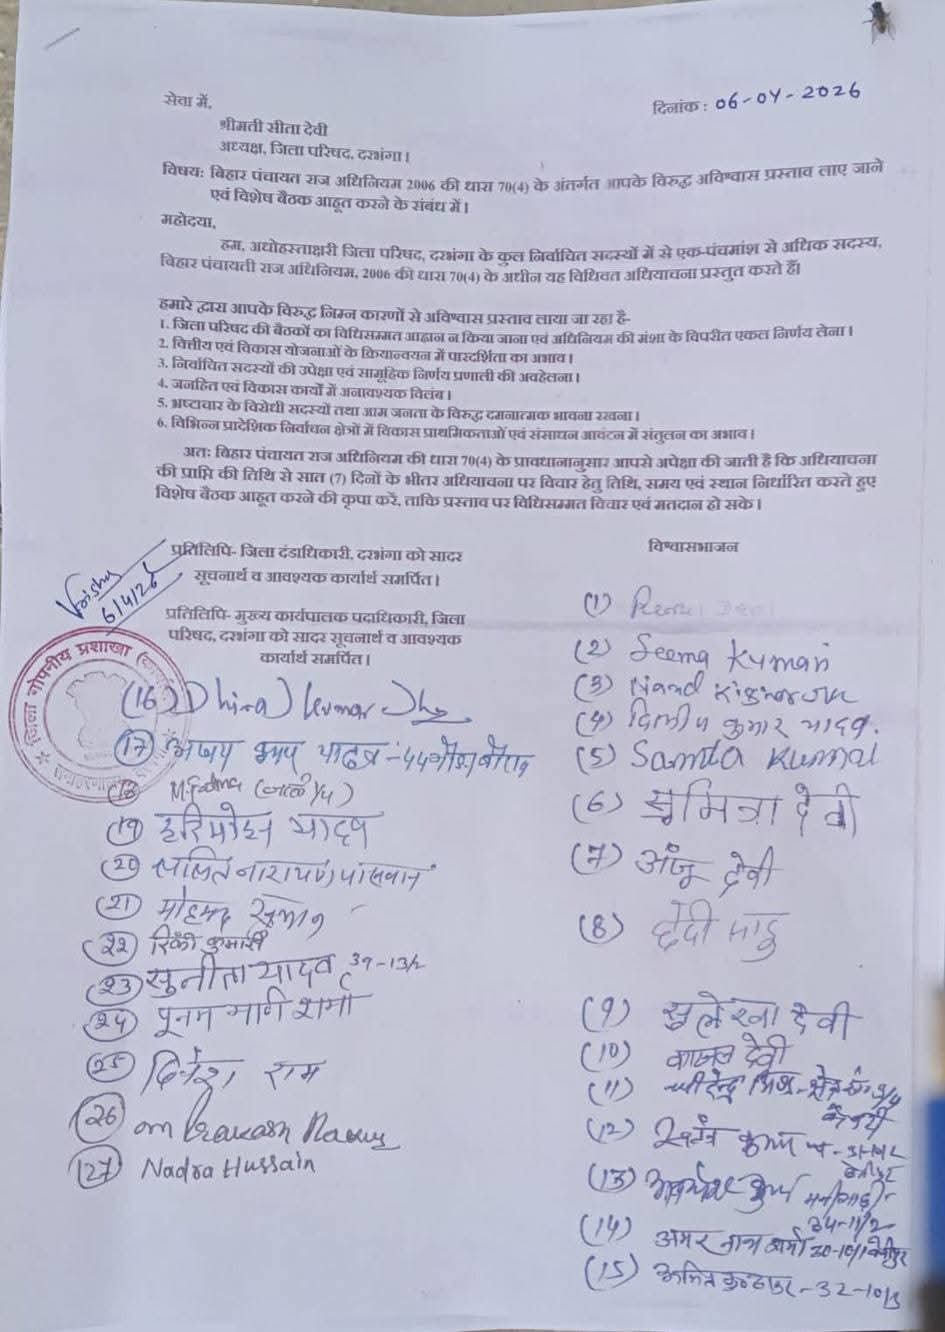 दिनांक : 06-04-2026
सेवा में,
श्रीमती सीता देवी
अध्यक्ष, जिला परिषद, दरभंगा।
विषय: बिहार पंचायत राज अधिनियम 2006 की धारा 70(4) के अंतर्गत आपके विरुद्ध अविश्वास प्रस्ताव लाए जाने
एवं विशेष बैठक आहूत करने के संबंध में।
महोदया,
हम, अधोहस्ताक्षरी जिला परिषद, दरभंगा के कुल निर्वाचित सदस्यों में से एक-पंचमांश से अधिक सदस्य,
बिहार पंचायती राज अधिनियम, 2006 की धारा 70(4) के अधीन यह विधिवत अधियाचना प्रस्तुत करते हैं।
हमारे द्वारा आपके विरुद्ध निम्न कारणों से अविश्वास प्रस्ताव लाया जा रहा है-
1. जिला परिषद की बैठकों का विधिसम्मत आह्वान न किया जाना एवं अधिनियम की मंशा के विपरीत एकल निर्णय लेना।
2. वित्तीय एवं विकास योजनाओं के क्रियान्वयन में पारदर्शिता का अभाव।
3. निर्वाचित सदस्यों की उपेक्षा एवं सामूहिक निर्णय प्रणाली की अवहेलना।
4. जनहित एवं विकास कार्यों में अनावश्यक विलंब।
5. भ्रष्टाचार के विरोधी सदस्यों तथा आम जनता के विरुद्ध दमनात्मक भावना रखना।
6. विभिन्न प्रादेशिक निर्वाचन क्षेत्रों में विकास प्राथमिकताओं एवं संसाधन आवंटन में संतुलन का अभाव।
अतः बिहार पंचायत राज अधिनियम की धारा 70(4) के प्रावधानानुसार आपसे अपेक्षा की जाती है कि अधियाचना
की प्राप्ति की तिथि से सात (7) दिनों के भीतर अधियाचना पर विचार हेतु तिथि, समय एवं स्थान निर्धारित करते हुए
विशेष बैठक आहूत करने की कृपा करें, ताकि प्रस्ताव पर विधिसम्मत विचार एवं मतदान हो सके।
प्रतिलिपि- जिला दंडाधिकारी, दरभंगा को सादर
सूचनार्थ व आवश्यक कार्यार्थ समर्पित।
6/4/26
प्रतिलिपि- मुख्य कार्यपालक पदाधिकारी, जिला
परिषद, दरभंगा को सादर सूचनार्थ व आवश्यक
कार्यार्थ समर्पित।
जिला गोपनीय प्रशाखा
(16) Dhiraj Kumar Jha
(17)
(18) M. Fatma
(19) हरिमोहन यादव
(20) ललित नारायण पासवान
(21) मोहमद
(22) रिंकी कुमारी
(23) सुनीता यादव 39-13/2
(24) पूनम शर्मा
(25) दिनेश राम
(26) Om Prakash
(27) Nadra Hussain
विश्वासभाजन
(1) Renu Devi
(2) Seema Kumari
(3) Nand Kishor
(4) दिलीप कुमार यादव
(5) Kumari
(6) सुमित्रा देवी
(7) अंजू देवी
(8) साहु
(9) सुलेखा देवी
(10) काजल देवी
(11) 3/4
(12)
(13) 34-11/2
(14) अमर नाथ शर्मा 30-10/1
(15) 32-10/3